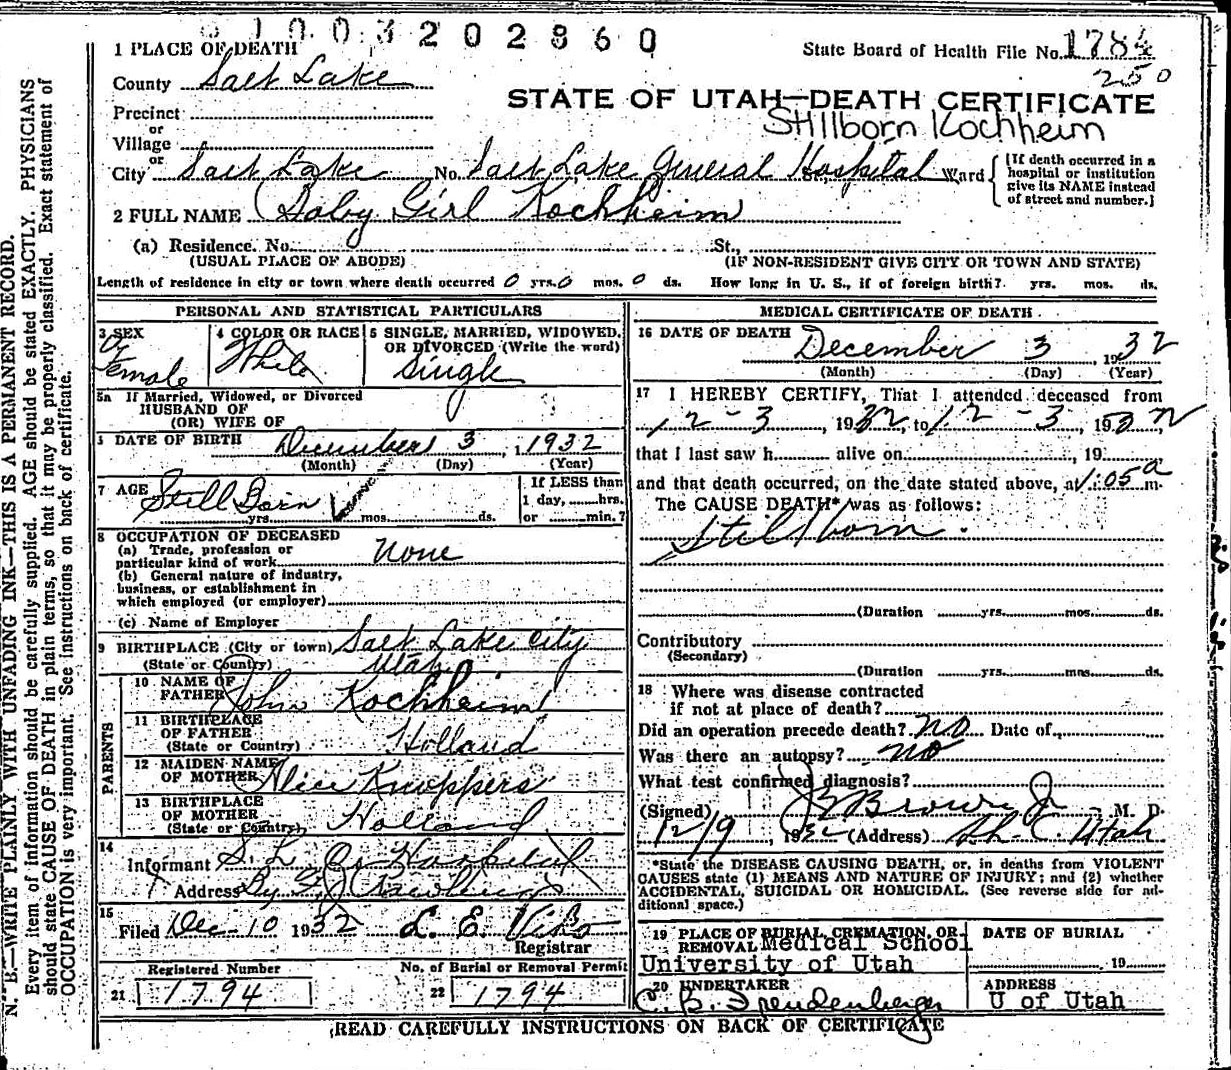 1003202860
1 PLACE OF DEATH
State Board of Health File No. 1784
250
County Salt Lake
STATE OF UTAH—DEATH CERTIFICATE
Precinct
Stillborn Kochheim
or
Village
or
City Salt Lake No. Salt Lake General Hospital St., Ward
{If death occurred in a hospital or institution give its NAME instead of street and number.}
2 FULL NAME (Baby Girl Kochheim)
(a) Residence. No. St.,
(USUAL PLACE OF ABODE) (IF NON-RESIDENT GIVE CITY OR TOWN AND STATE)
Length of residence in city or town where death occurred 0 yrs. 0 mos. 0 ds. How long in U. S., if of foreign birth? yrs. mos. ds.
PERSONAL AND STATISTICAL PARTICULARS
3 SEX
Female
4 COLOR OR RACE
White
5 SINGLE, MARRIED, WIDOWED, OR DIVORCED (Write the word)
Single
5a If Married, Widowed, or Divorced
HUSBAND OF
(OR) WIFE OF
DATE OF BIRTH December 3, 1932
(Month) (Day) (Year)
7 AGE Still Born
yrs. mos. ds.
If LESS than
1 day, hrs.
or min.?
8 OCCUPATION OF DECEASED
(a) Trade, profession or
particular kind of work None
(b) General nature of industry,
business, or establishment in
which employed (or employer)
(c) Name of Employer
9 BIRTHPLACE (City or town) Salt Lake City
(State or Country) Utah
PARENTS
10 NAME OF FATHER John Kochheim
11 BIRTHPLACE OF FATHER
(State or Country) Holland
12 MAIDEN NAME OF MOTHER Alice Knoppers
13 BIRTHPLACE OF MOTHER
(State or Country) Holland
14
Informant S. L. Co. Hospital
Address By
15
Filed Dec 10 1932 L. E. Viko
Registrar
Registered Number
21 1794
No. of Burial or Removal Permit
22 1794
MEDICAL CERTIFICATE OF DEATH
16 DATE OF DEATH
December 3 1932
(Month) (Day) (Year)
17 I HEREBY CERTIFY, That I attended deceased from
12-3, 1932, to 12-3, 1932
that I last saw h alive on , 19
and that death occurred, on the date stated above, at 1:05 a m.
The CAUSE DEATH* was as follows:
Stillborn.
(Duration yrs. mos. ds.
Contributory
(Secondary)
(Duration yrs. mos. ds.
18 Where was disease contracted
if not at place of death?
Did an operation precede death? no Date of
Was there an autopsy? no
What test confirmed diagnosis?
(Signed) Brown Jr M. D.
12/9, 1932 (Address) S. L. C. Utah
*State the DISEASE CAUSING DEATH, or, in deaths from VIOLENT
CAUSES state (1) MEANS AND NATURE OF INJURY; and (2) whether
ACCIDENTAL, SUICIDAL OR HOMICIDAL. (See reverse side for additional space.)
19 PLACE OF BURIAL, CREMATION, OR
REMOVAL Medical School
University of Utah
DATE OF BURIAL
19
20 UNDERTAKER
C. B. Freudenberger
ADDRESS
U of Utah
READ CAREFULLY INSTRUCTIONS ON BACK OF CERTIFICATE
N. B.—WRITE PLAINLY WITH UNFADING INK—THIS IS A PERMANENT RECORD.
Every item of information should be carefully supplied. AGE should be stated EXACTLY. PHYSICIANS
should state CAUSE OF DEATH in plain terms, so that it may be properly classified. Exact statement of
OCCUPATION is very important. See instructions on back of certificate.